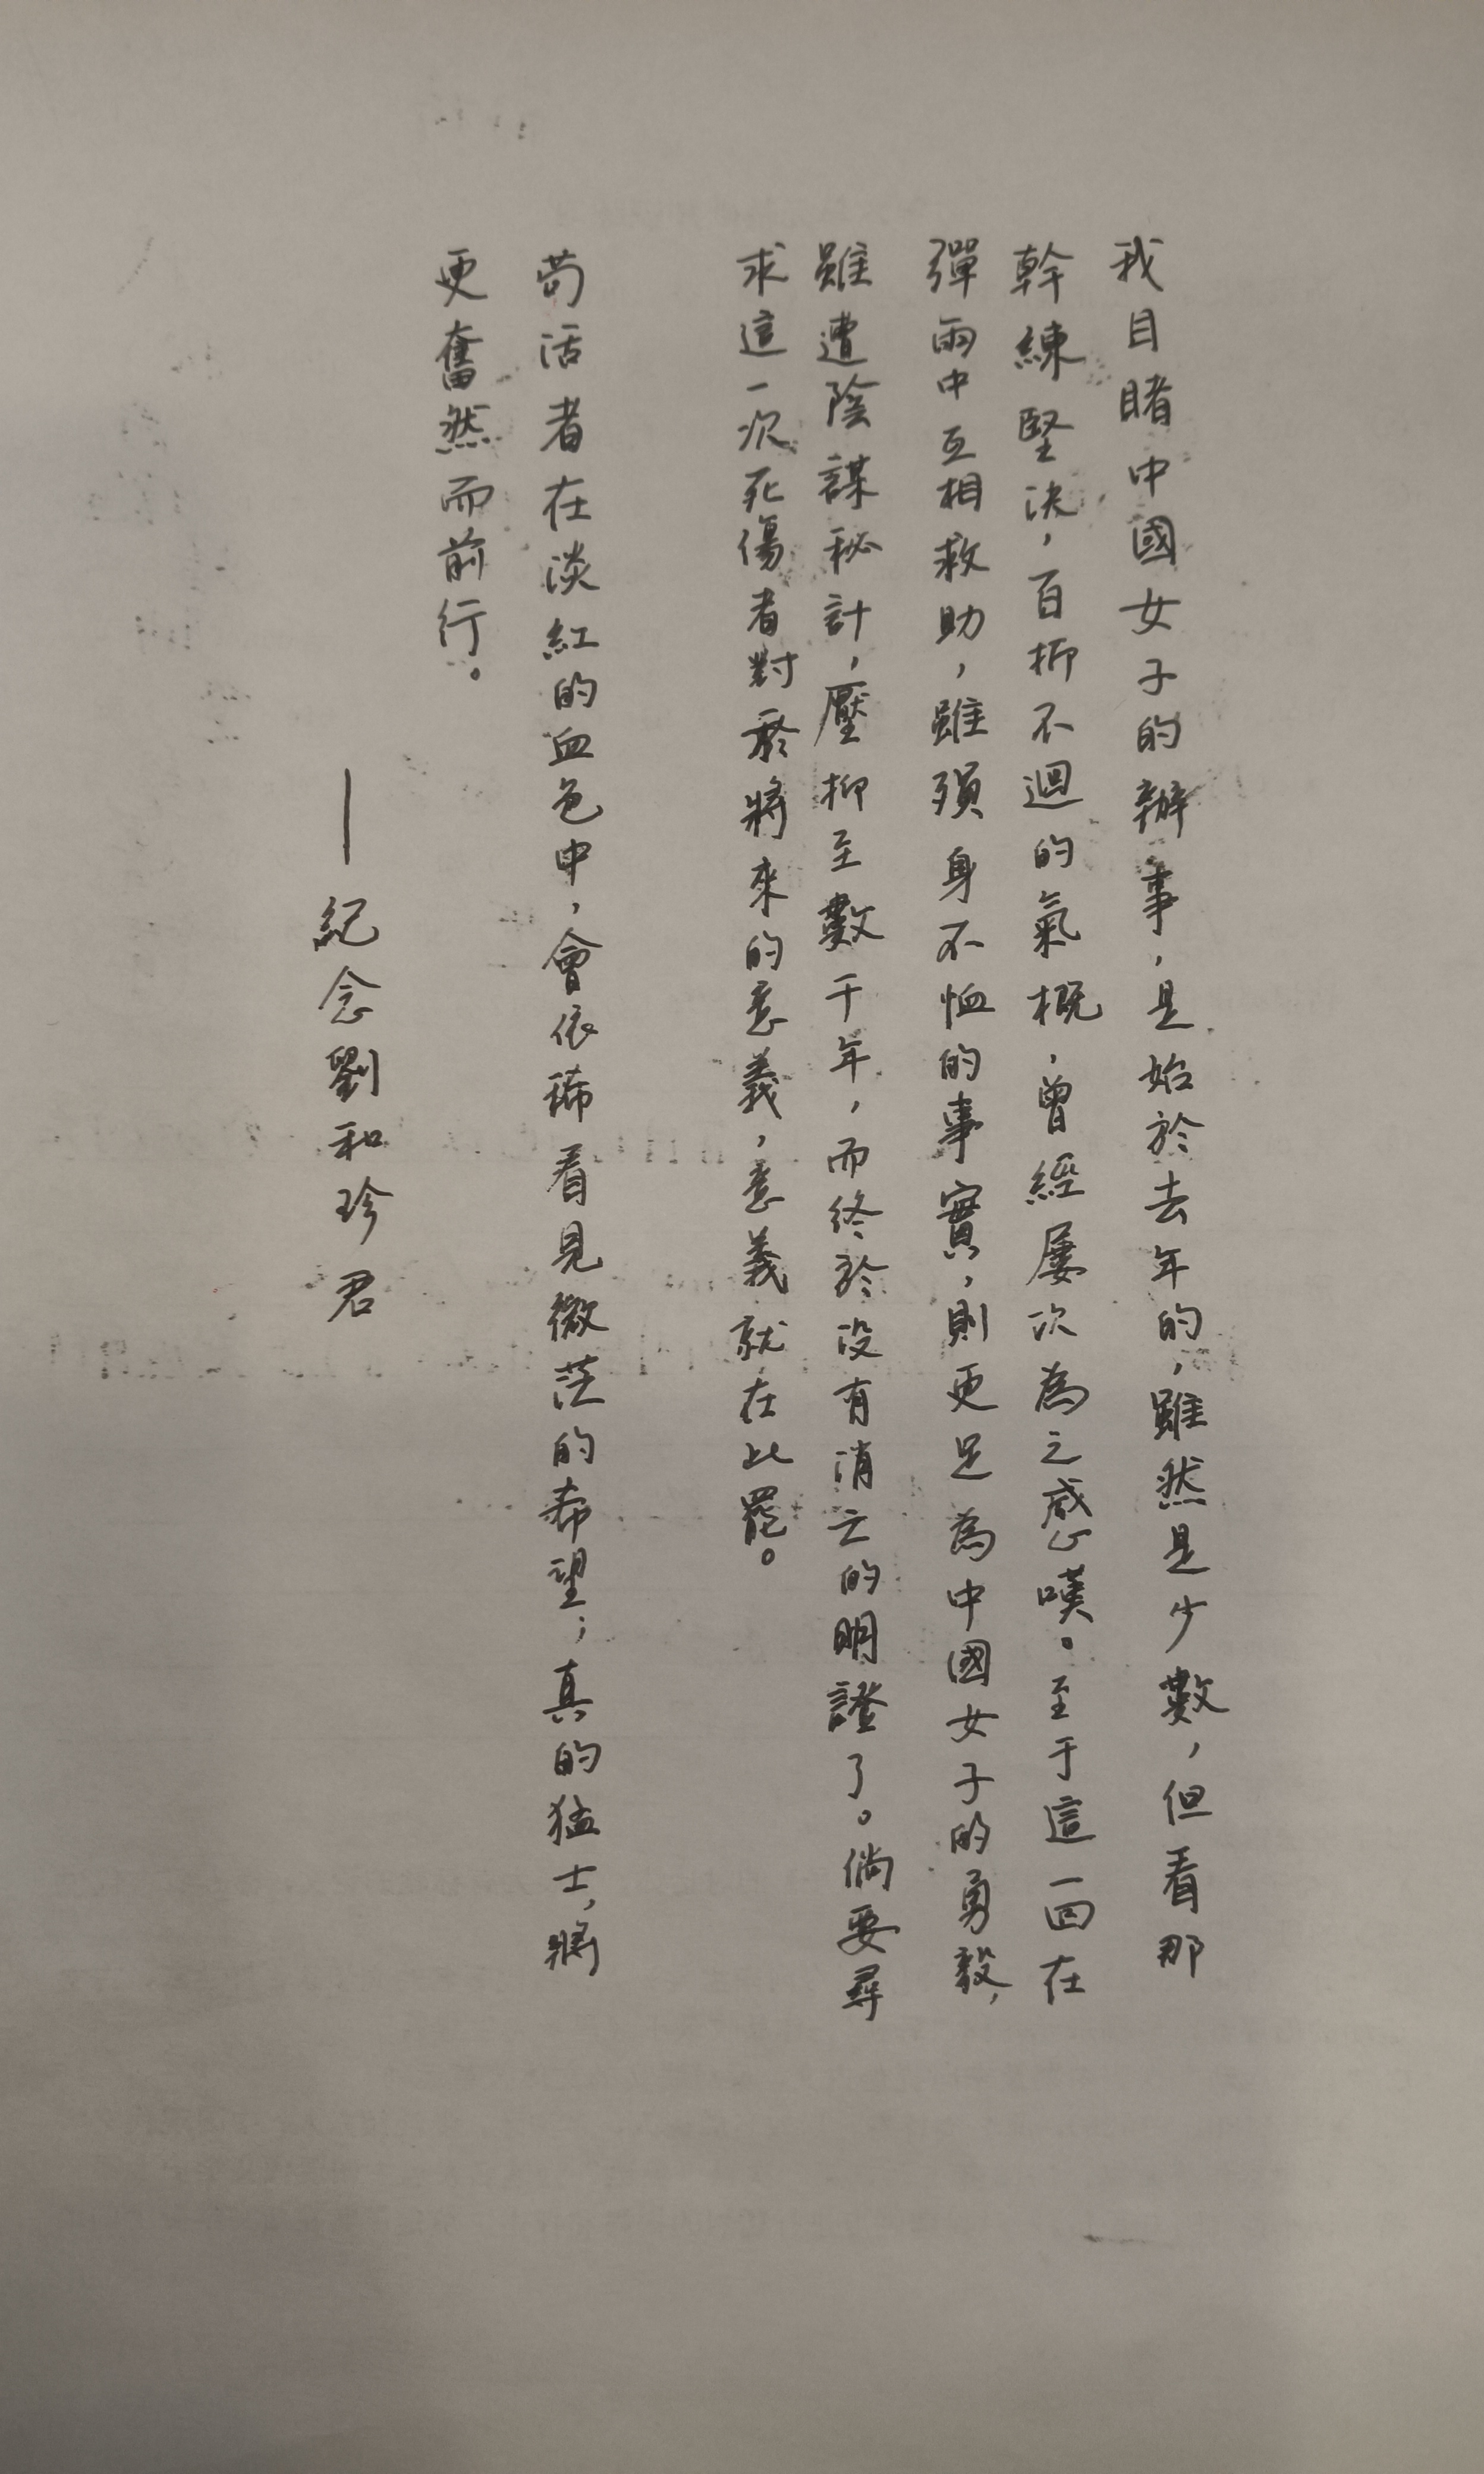 我目睹中國女子的辦事，是始於去年的，雖然是少數，但看那
幹練堅決，百折不迴的氣概，曾經屢次為之感嘆。至于這一回在
彈雨中互相救助，雖殞身不恤的事實，則更足為中國女子的勇毅，
雖遭陰謀秘計，壓抑至數千年，而終於没有消亡的明證了。倘要尋
求這一次死傷者對於將來的意義，意義就在此罷。
苟活者在淡紅的血色中，會依稀看見微茫的希望；真的猛士，將
更奮然而前行。
——紀念劉和珍君